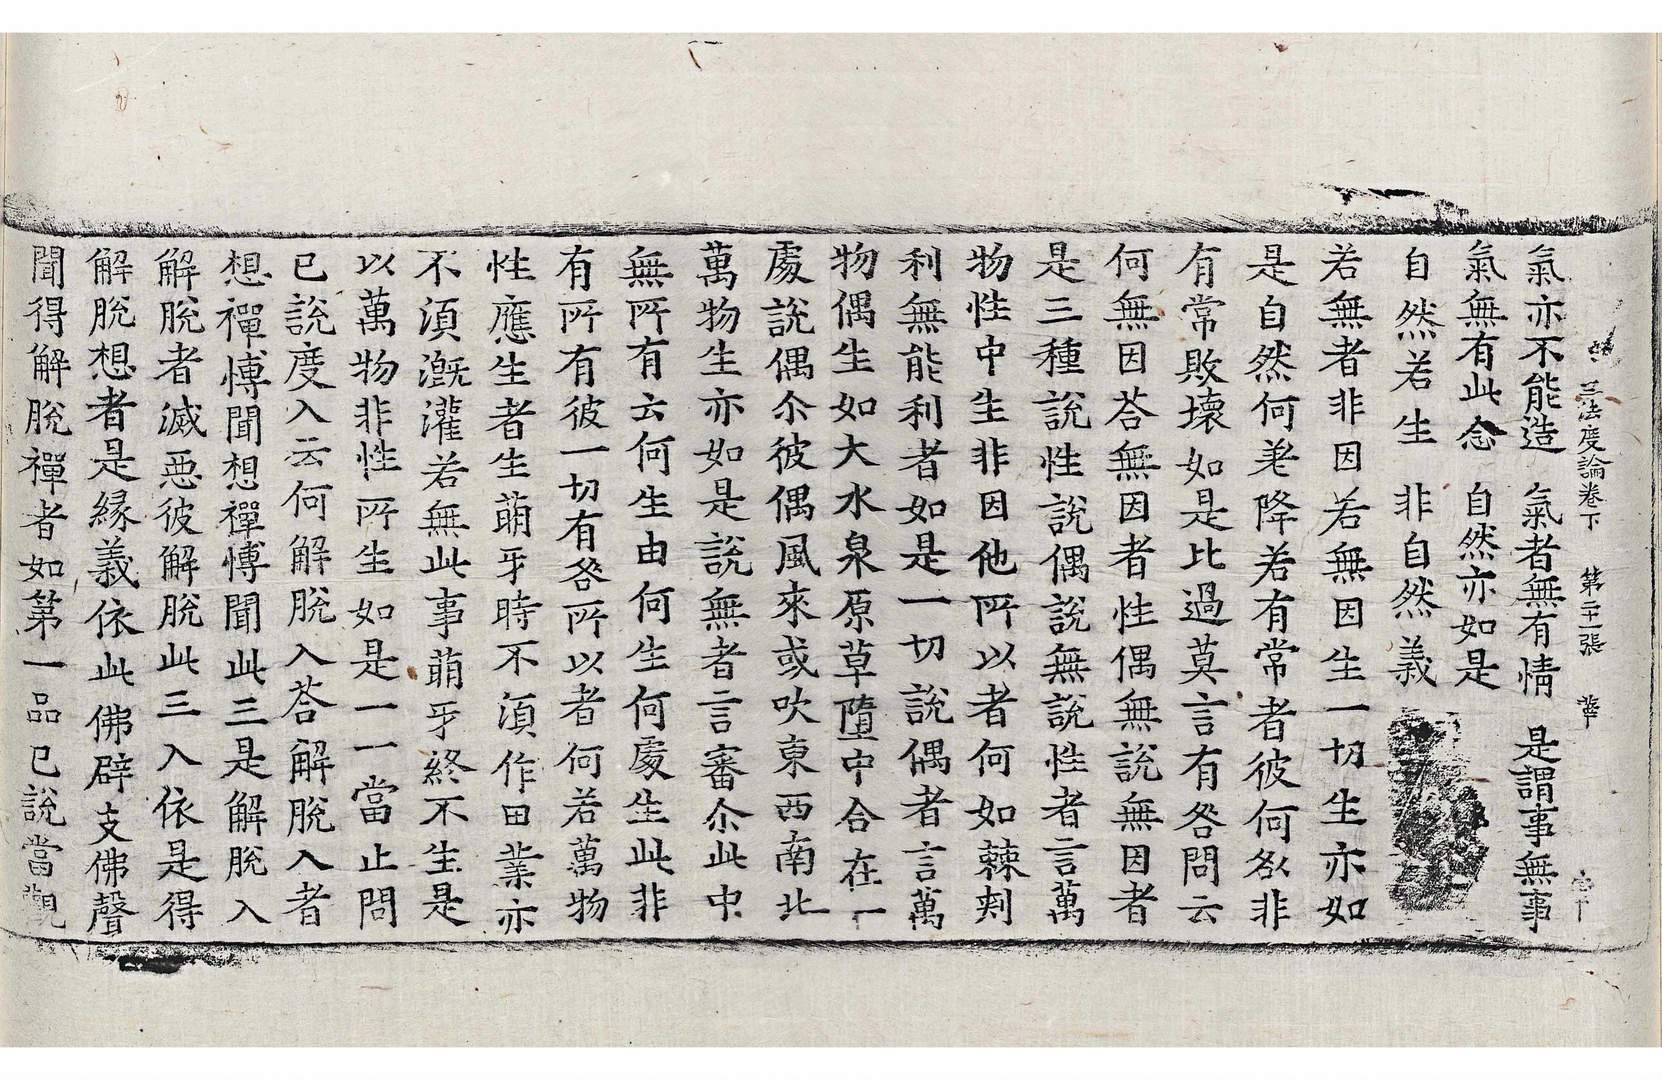 三法度論卷下　第二十一張　華
氣亦不能造　氣者無有情　是謂事無事
氣無有此念　自然亦如是
自然若生　非自然義
若無者非因若無因生一切生亦如
是自然何羌降若有常者彼何欲非
有常敗壞如是比過莫言有咎問云
何無因荅無因者性偶無說無因者
是三種說性說偶說無說性者言萬
物性中生非因他所以者何如棘刺
利無能利者如是一切說偶者言萬
物偶生如大水泉原草墮中合在一
處說偶尒彼偶風來或吹東西南北
萬物生亦如是說無者言審尒此中
無所有云何生由何生何處生此非
有所有彼一切有咎所以者何若萬物
性應生者生萌牙時不須作田業亦
不須漑灌若無此事萌牙終不生是
以萬物非性所生如是一一當止問
已說度入云何解脫入荅解脫入者
想禪慱聞想禪慱聞此三是解脫入
解脫者滅惡彼解脫此三入依是得
解脫想者是緣義依此佛辟支佛聲
聞得解脫禪者如第一品已說當觀